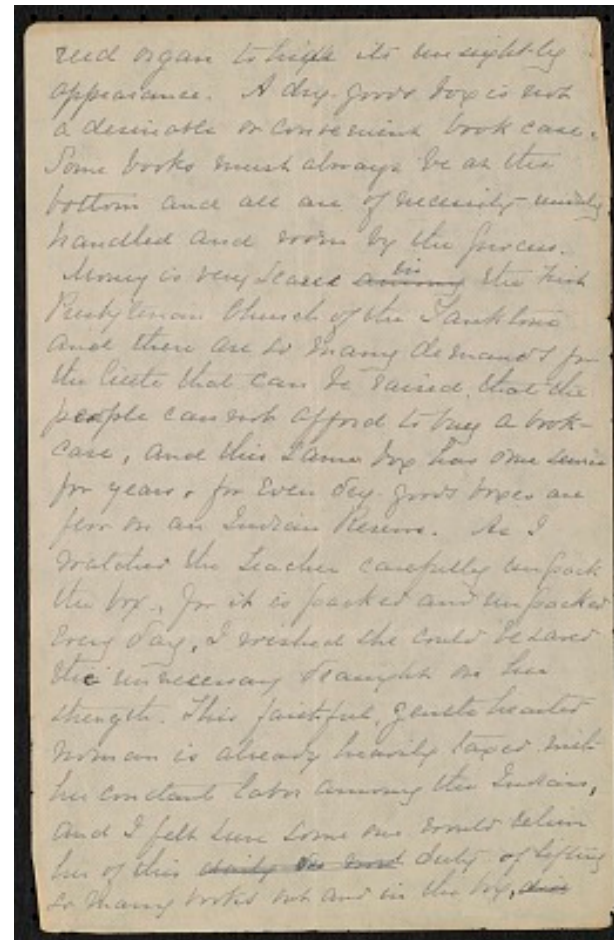 reed organ to hide its unsightly
appearance. A dry-goods box is not
a desirable or convenient book case.
Some books must always be at the
bottom and all are of necessity
handled and worn by the process.
Money is very scarce among in the
Presbyterian Church of the
and there are so many demands for
the little that can be raised, that the
people cannot afford to buy a book-
case, and this same box has
for years, for even dry-goods boxes are
few on an Indian Reserve. As I
watched the teacher carefully unpack
the box, for it is packed and unpacked
every day, I wished she could be saved
the unnecessary draught on her
strength. This faithful, gentle hearted
woman is already heavily taxed with
her constant labor among the Indians,
and I felt sure some one would relieve
her of this daily duty of lifting
so many books out and in the box,